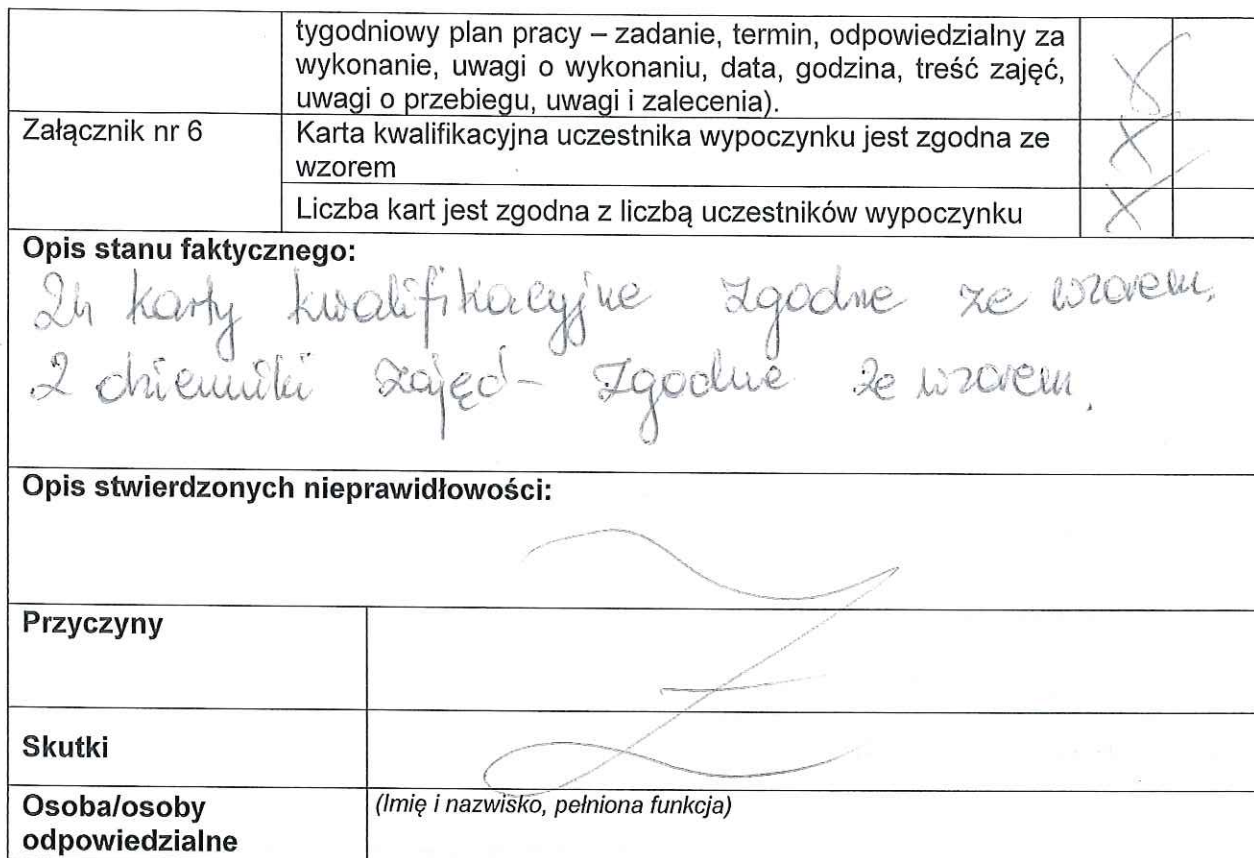 tygodniowy plan pracy – zadanie, termin, odpowiedzialny za
wykonanie, uwagi o wykonaniu, data, godzina, treść zajęć,
uwagi o przebiegu, uwagi i zalecenia).
Załącznik nr 6
Karta kwalifikacyjna uczestnika wypoczynku jest zgodna ze
wzorem
Liczba kart jest zgodna z liczbą uczestników wypoczynku
Opis stanu faktycznego:
24 karty kwalifikacyjne zgodne ze wzorem.
2 dzienniki zajęć - zgodne ze wzorem.
Opis stwierdzonych nieprawidłowości:
Przyczyny
Skutki
Osoba/osoby
odpowiedzialne
(Imię i nazwisko, pełniona funkcja)